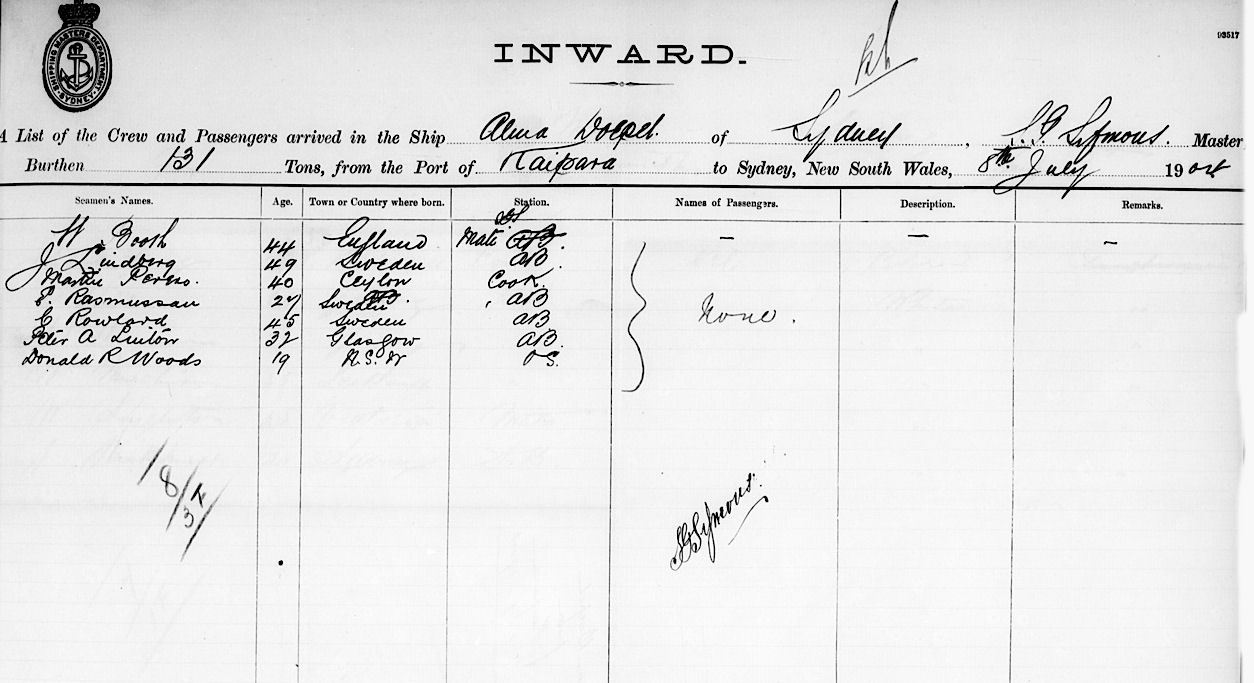 93517
SHIPPING MASTERS DEPARTMENT SYDNEY
INWARD.
A List of the Crew and Passengers arrived in the Ship Alma Doepel of Sydney, Symons. Master
Burthen 131 Tons, from the Port of Kaipara to Sydney, New South Wales, 8th July 1904
Seamen's Names. Age. Town or Country where born. Station. Names of Passengers. Description. Remarks.
W Booth 44 England Mate — — —
J Lindberg 49 Sweden AB
Martin 40 Ceylon Cook
P. Rasmussan 27 Sweden AB
C Rowland 45 Sweden AB None.
Peter A Linton 32 Glasgow AB.
Donald R Woods 19 N.S.W OS.
Symons.